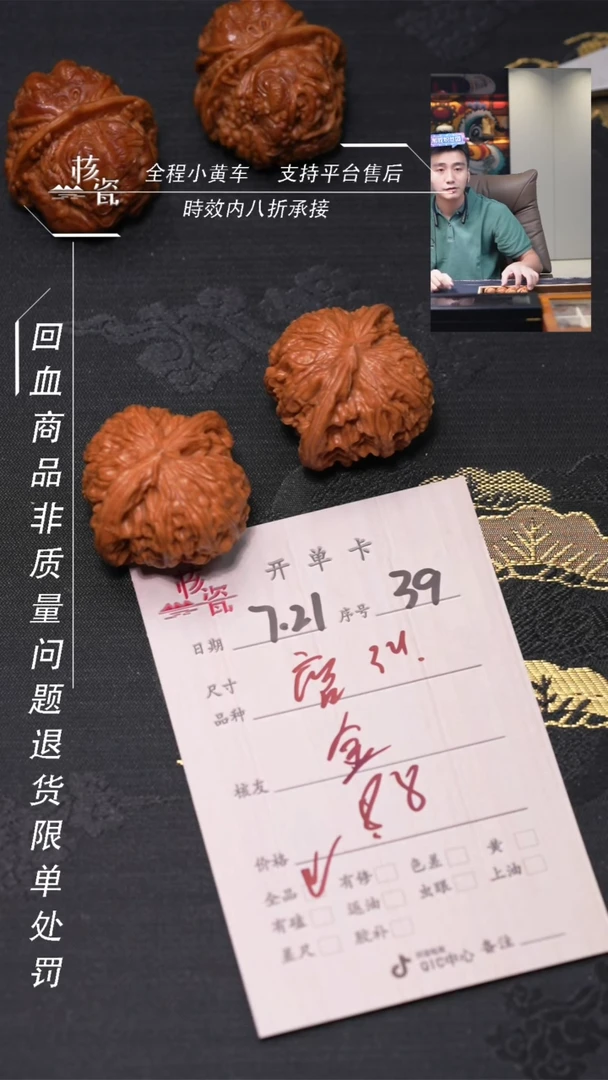 核瓷
全程小黄车 支持平台售后
時效内八折承接
回血商品非质量问题退货限单处罚
核瓷
开单卡
日期 7.21 序号 39
尺寸
品种
核友 金
价格 8.8
全品 ✓ 有修 色差 黄
有磕 返油 虫眼 上油
差尺 胶补
QIC中心 备注